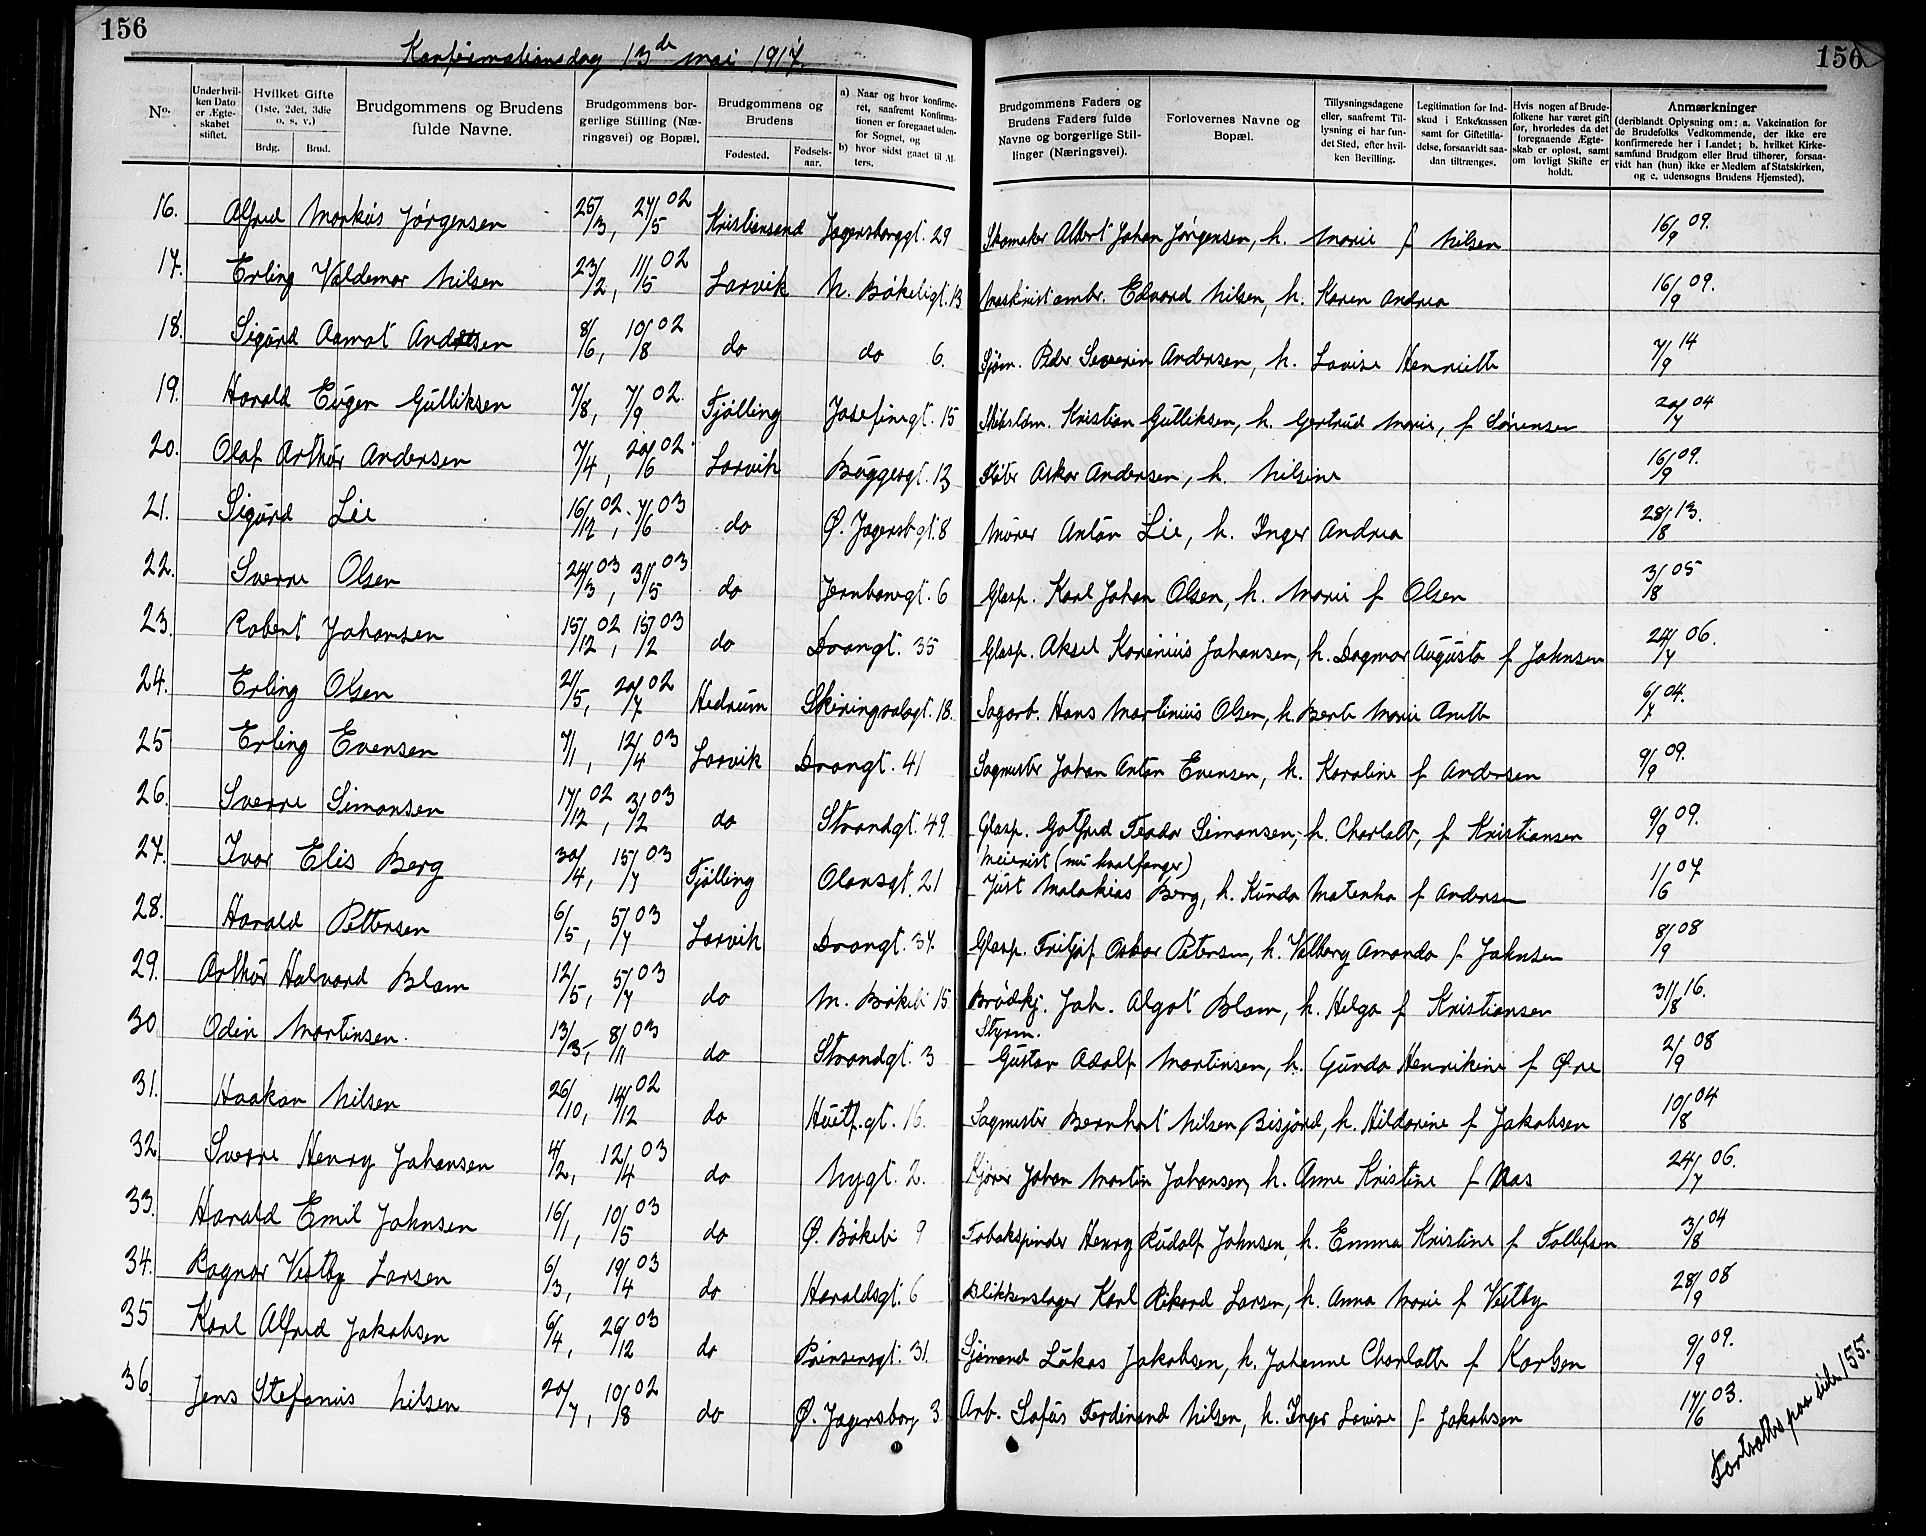 156
Konfirmationsdag 13de mai 1917.
156
No.
Under hvilken Dato er Ægteskabet stiftet.
Hvilket Gifte (1ste, 2det, 3die o. s. v.)
Brdg.
Brud.
Brudgommens og Brudens fulde Navne.
Brudgommens borgerlige Stilling (Næringsvei) og Bopæl.
Brudgommens og Brudens
Fødested.
Fødselsaar.
a) Naar og hvor konfirmeret, saafremt Konfirmationen er foregaaet udenfor Sognet, og
b) hvor sidst gaaet til Alters.
Brudgommens Faders og Brudens Faders fulde Navne og borgerlige Stillinger (Næringsvei).
Forlovernes Navne og Bopæl.
Tillysningsdagene eller, saafremt Tillysning ei har fundet Sted, efter hvilken Bevilling.
Legitimation for Indskud i Enkekassen samt for Giftetilladelse, forsaavidt saadan tiltrænges.
Hvis nogen af Brudefolkene har været gift før, hvorledes da det foregaaende Ægteskab er opløst, samt om lovligt Skifte er holdt.
Anmærkninger (deriblandt Oplysning om: a. Vakcination for de Brudefolks Vedkommende, der ikke ere konfirmerede her i Landet; b. hvilket Kirkesamfund Brudgom eller Brud tilhører, forsaavidt han (hun) ikke er Medlem af Statskirken, og c. udensogns Brudens Hjemsted).
16. Alfred Markus Jørgensen 25/3, 27/5 02 Kristiansand Jagersborggt. 29 Skomaker Albert Johan Jørgensen, h. Marie f Nilsen 16/9 09.
17. Erling Valdemar Nilsen 23/2, 11/5 02 Larvik N. Bökeligt. 13 Maskinistambr. Edvard Nilsen, h. Karen Andrea 16/9 09.
18. Sigurd Aamot Andersen 8/6, 10/8 02 do do 6. Sjöm. Peder Severin Andersen, h. Lovise Henriette 7/9 14
19. Harald Eugen Gulliksen 7/8, 7/9 02. Tjölling Josefinegt. 15 Kristian Gulliksen, h. Gertrud Marie, f Sörensen 20/7 04
20. Olaf Arthur Andersen 7/4, 20/6 02. Larvik Buggesgt. 13 Fløter Oskar Andersen, h. Nilsine 16/9 09.
21. Sigurd Lie 16/12 02, 7/6 03 do Ø. Jagersbgt. 8 Murer Anton Lie, h. Inger Andrea 28/8 13.
22. Sverre Olsen 24/3 03, 31/5 03 do Jernbanegt. 6 Glasp. Karl Johan Olsen, h. Marie f Olsen 3/8 05
23. Robert Johansen 15/12 02, 15/2 03 do Dronngt. 35 Glasp. Aksel Karinius Johansen, h. Dagmar Augusta f Johnsen 24/7 06.
24. Erling Olsen 2/5, 20/7 02 Hedrum Skiringssalsgt. 18. Sagarb. Hans Martinius Olsen, h. Berte Marie Anette 6/7 04.
25 Erling Evensen 7/1, 12/4 03 Larvik Dronngt. 41 Sagmester Johan Anton Evensen, h. Karoline f Andersen 9/9 09.
26. Sverre Simonsen 17/12 02, 3/2 03 do Strandgt. 49 Glasp. Gotfred Teodor Simonsen, h. Charlotte, f Kristiansen 9/9 09.
27. Ivar Elis Berg 30/4, 15/7 03 Tjölling Olavsgt. 21 Meierist (nu hvalfanger) Just Malakias Berg, h. Kunda Matenka f Andersen 1/6 07
28. Harald Pettersen 6/5, 5/7 03 Larvik Dronngt. 37. Glasp. Fritjof Oskar Petersen, h. Valborg Amanda f Johnsen 8/9 08
29. Arthur Halvard Blom 12/5, 5/7 03 do M. Bökeli 15 Brödkj. Joh. Algot Blom, h. Helga f Kristiansen 31/8 16.
30 Odin Martinsen. 13/3, 8/11 03 do Strandgt. 3 Styrm. Gustav Adolf Martinsen, h. Gunda Henrikine f Øre 2/9 08
31. Haakon Nilsen 26/10, 14/12 02 do Huitf.gt. 16. Sagmester Bernhart Nilsen Bisjörd, h. Hildarine f Jakobsen 10/8 04
32 Sverre Henry Johansen 4/2, 12/4 03 do Nygt. 2. Kjörer Johan Martin Johansen, h. Anne Kristine f Aas 24/7 06.
33. Harald Emil Johnsen 16/1, 10/5 03 do Ø. Bökeli 9 Tobakspinder Henry Rudolf Johnsen, h. Emma Kristine f Tollefsen 3/8 04
34. Ragnar Vestby Larsen 6/3, 19/4 03 do Haraldsgt. 6 Blikkenslager Karl Rikard Larsen, h. Anna Marie f Vestby 28/9 08
35 Karl Alfred Jakobsen 6/4, 26/12 03 do Prinsensgt. 31. Sjömand Lukas Jakobsen, h. Johanne Charlotte f Karlsen 9/9 09.
36. Jens Stefanius Nilsen 20/7, 10/8 02 do Ø. Jagersborg 3 Arb. Sofus Ferdinand Nilsen, h. Inger Lovise f Jakobsen 17/6 03.
Fortsættes paa side 155.